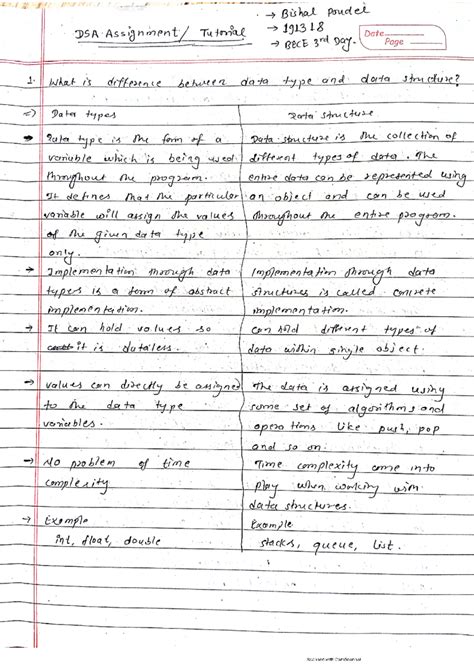 → Bishal Poudel
DSA Assignment/ Tutorial
→ 191318
→ BECE 3rd Day.
Date
Page
1. What is difference between data type and data structure?
=) Data types
Data structure
→ Data type is the form of a
variable which is being used
throughout the program.
It defines that the particular
variable will assign the values
of the given data type
only.
Data structure is the collection of
different types of data. The
entire data can be represented using
an object and can be used
throughout the entire program.
→ Implementation through data
types is a form of abstract
implementation.
Implementation through data
structures is called concrete
implementation.
→ It can hold values so
it is dataless.
can hold different types of
data within single object.
→ values can directly be assigned
to the data type
variables.
The data is assigned using
some set of algorithms and
operations like push, pop
and so on.
→ No problem of time
complexity
Time complexity come into
play when working with
data structures.
→ Example
int, float, double
Example
stacks, queue, list.